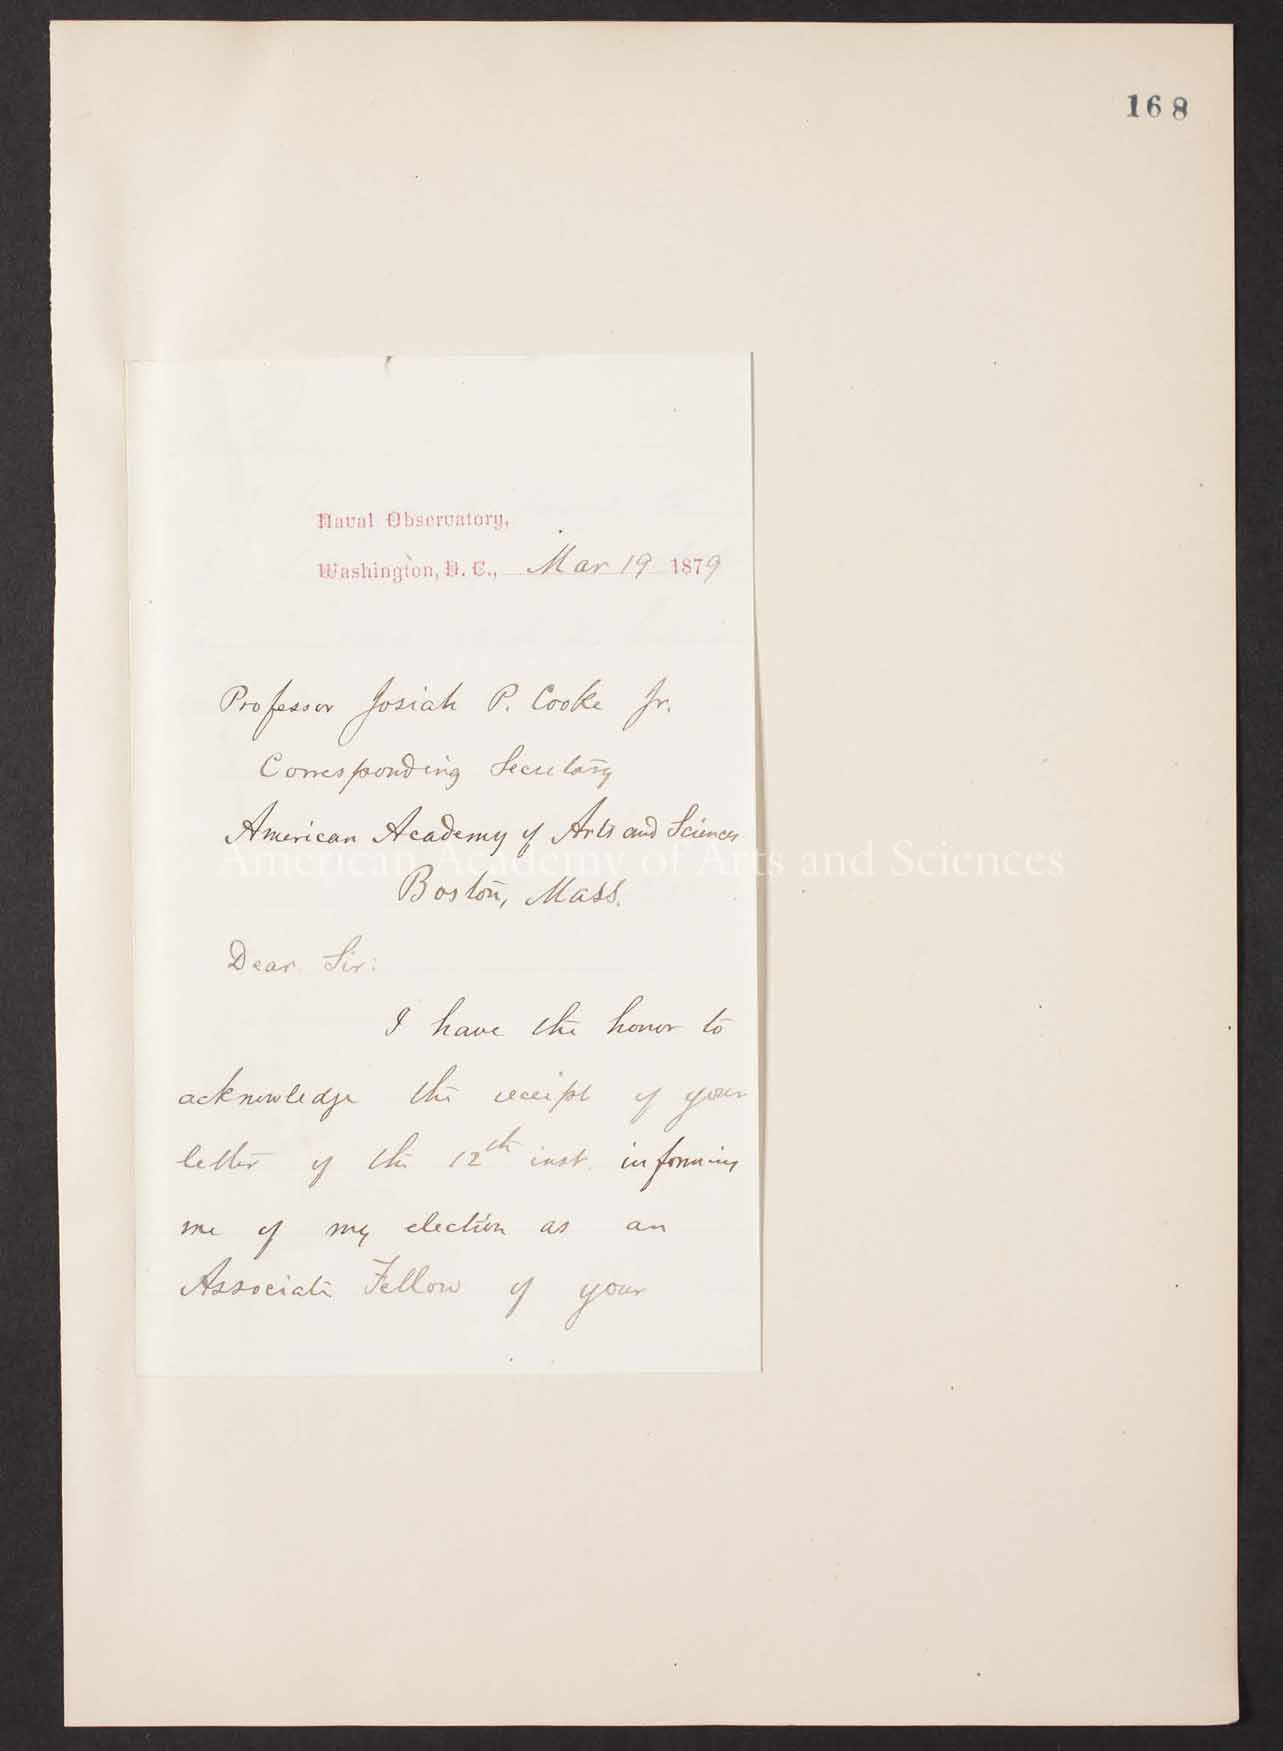 168
Naval Observatory,
Washington, D. C., Mar 19 1879
Professor Josiah P. Cooke Jr.
Corresponding Secretary
American Academy of Arts and Sciences
American Academy of Arts and Sciences
Boston, Mass.
Dear Sir:
I have the honor to
acknowledge the receipt of your
letter of the 12th inst. informing
me of my election as an
Associate Fellow of your